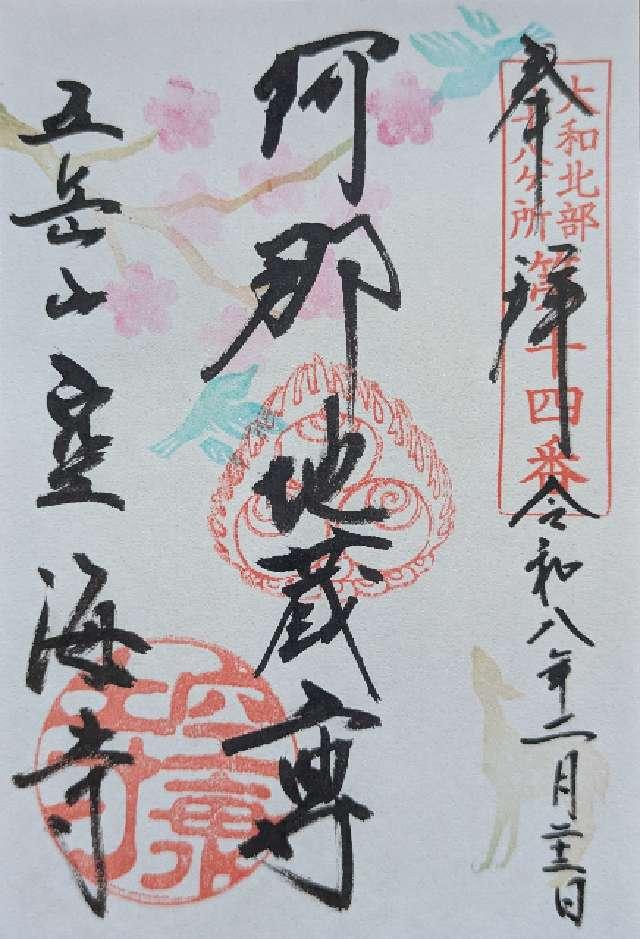 大和北部
八十八ヶ所第十四番
奉拝
令和八年二月二十三日
阿那地蔵尊
五岳山 空海寺